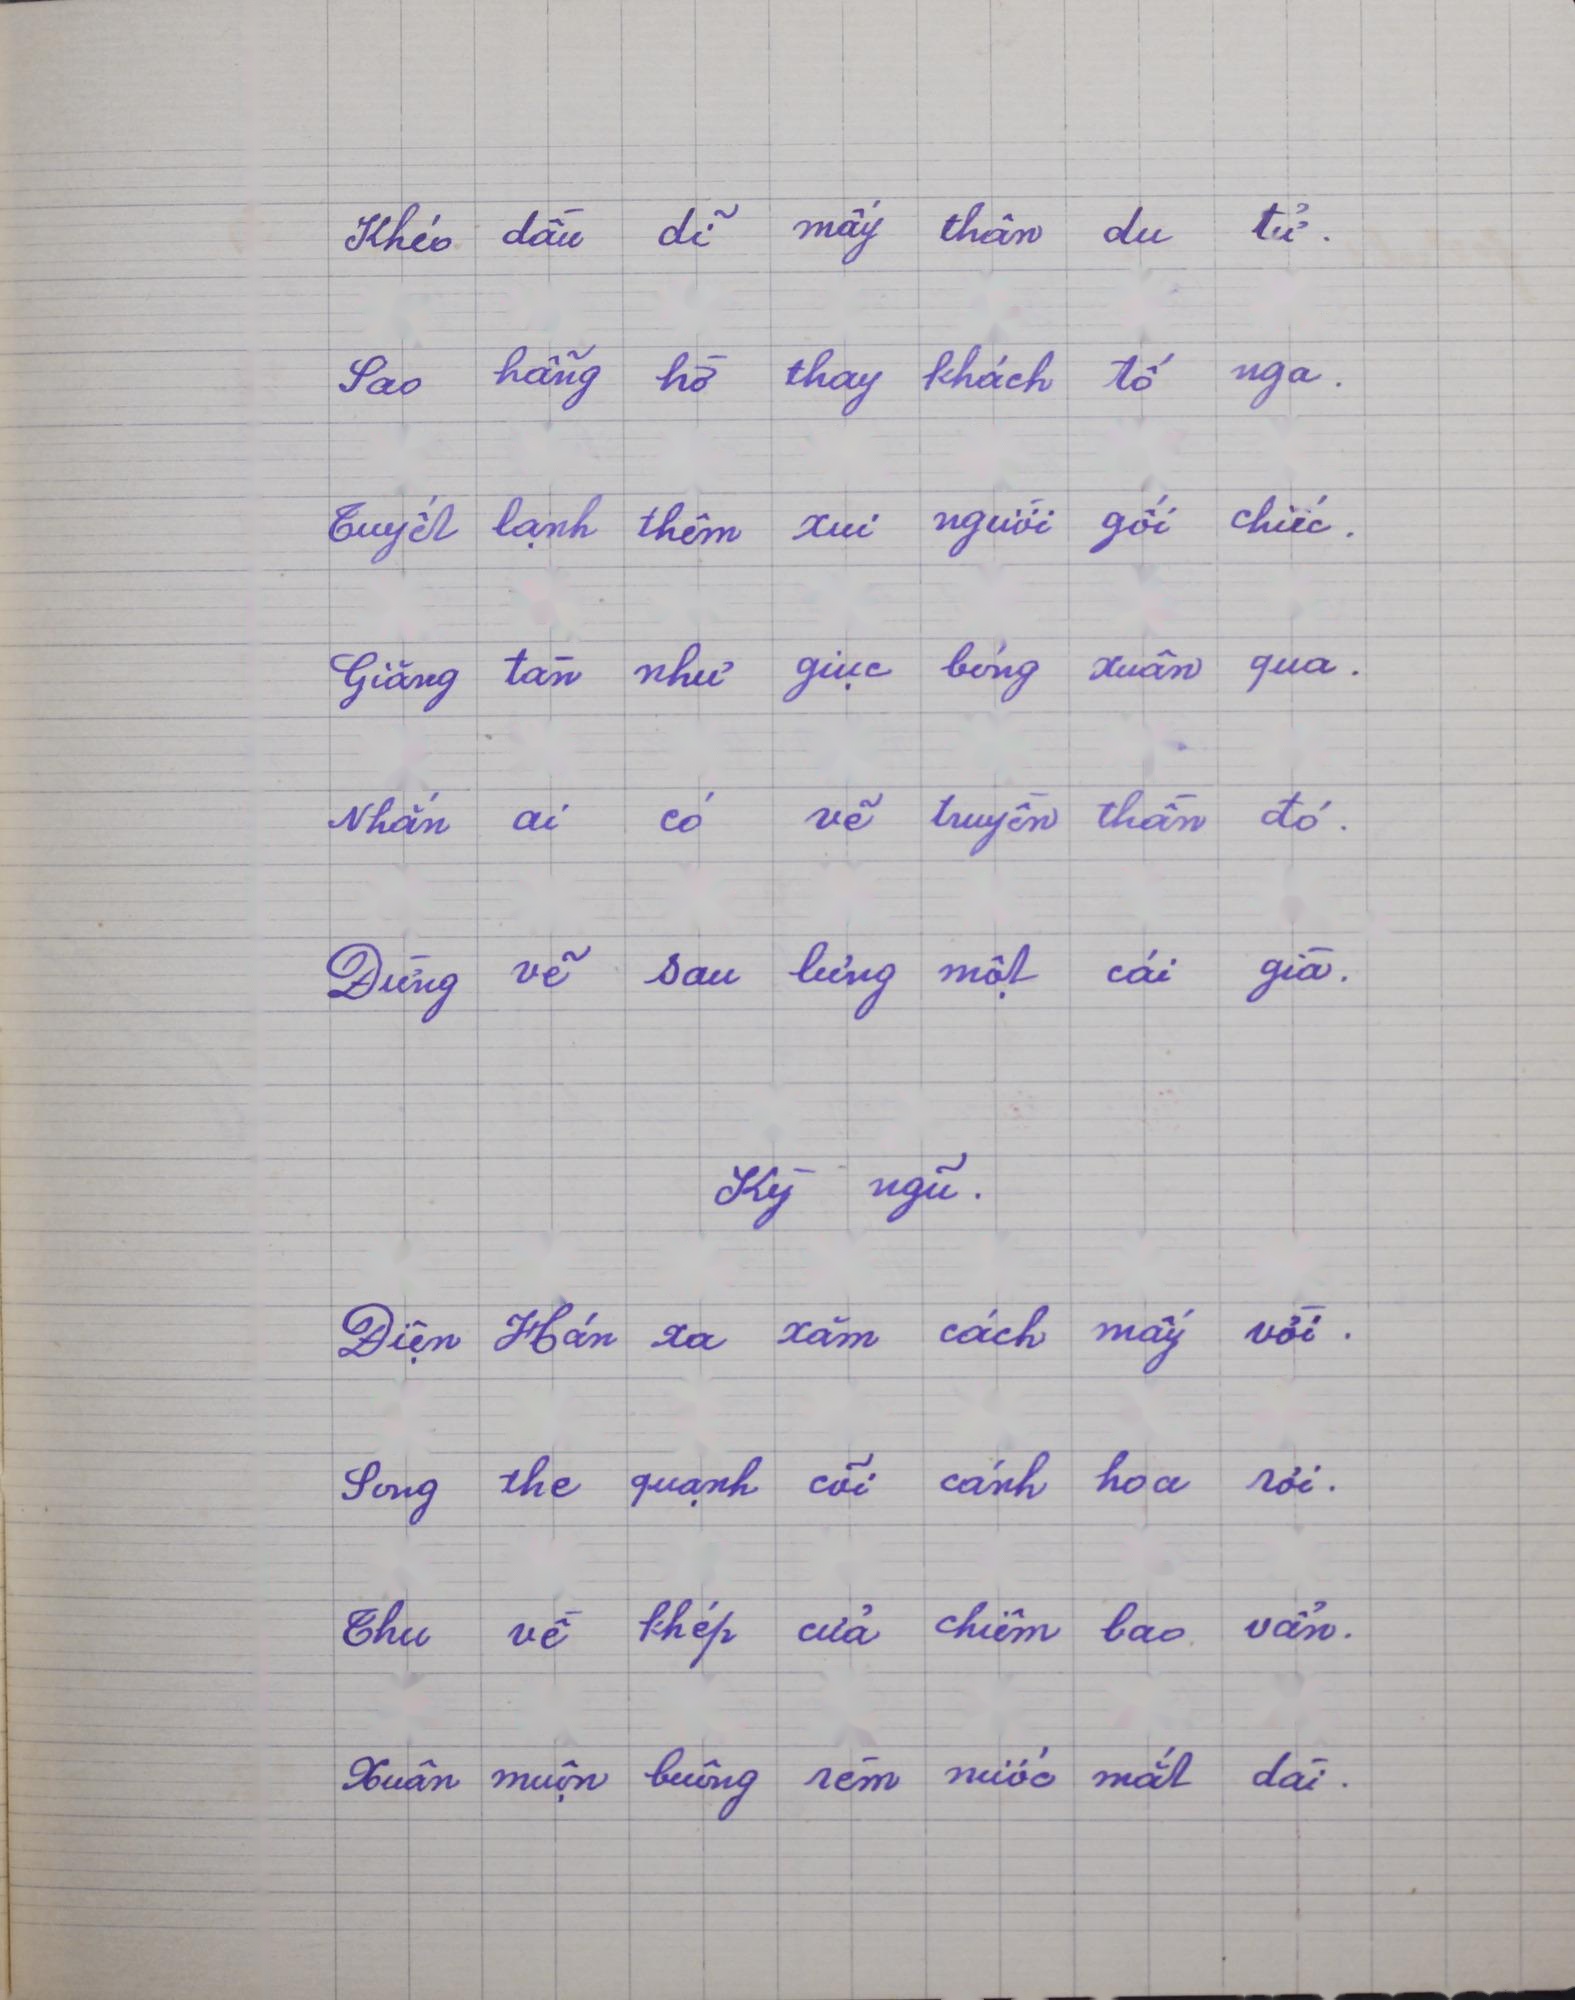 Khéo dầu dĩ mấy thân du tử.
Sao hẫng hờ thay khách tố nga.
Tuyết lạnh thêm xui người gối chiếc.
Giăng tàn như giục bóng xuân qua.
Nhắn ai có vẽ truyền thần đó.
Đừng vẽ sau lưng một cái già.
Kỳ ngũ.
Điện Hán xa xăm cách mấy vời.
Song the quạnh cõi cánh hoa rơi.
Thu về khép cửa chiêm bao vẩn.
Xuân muộn buông rèm nước mắt dài.